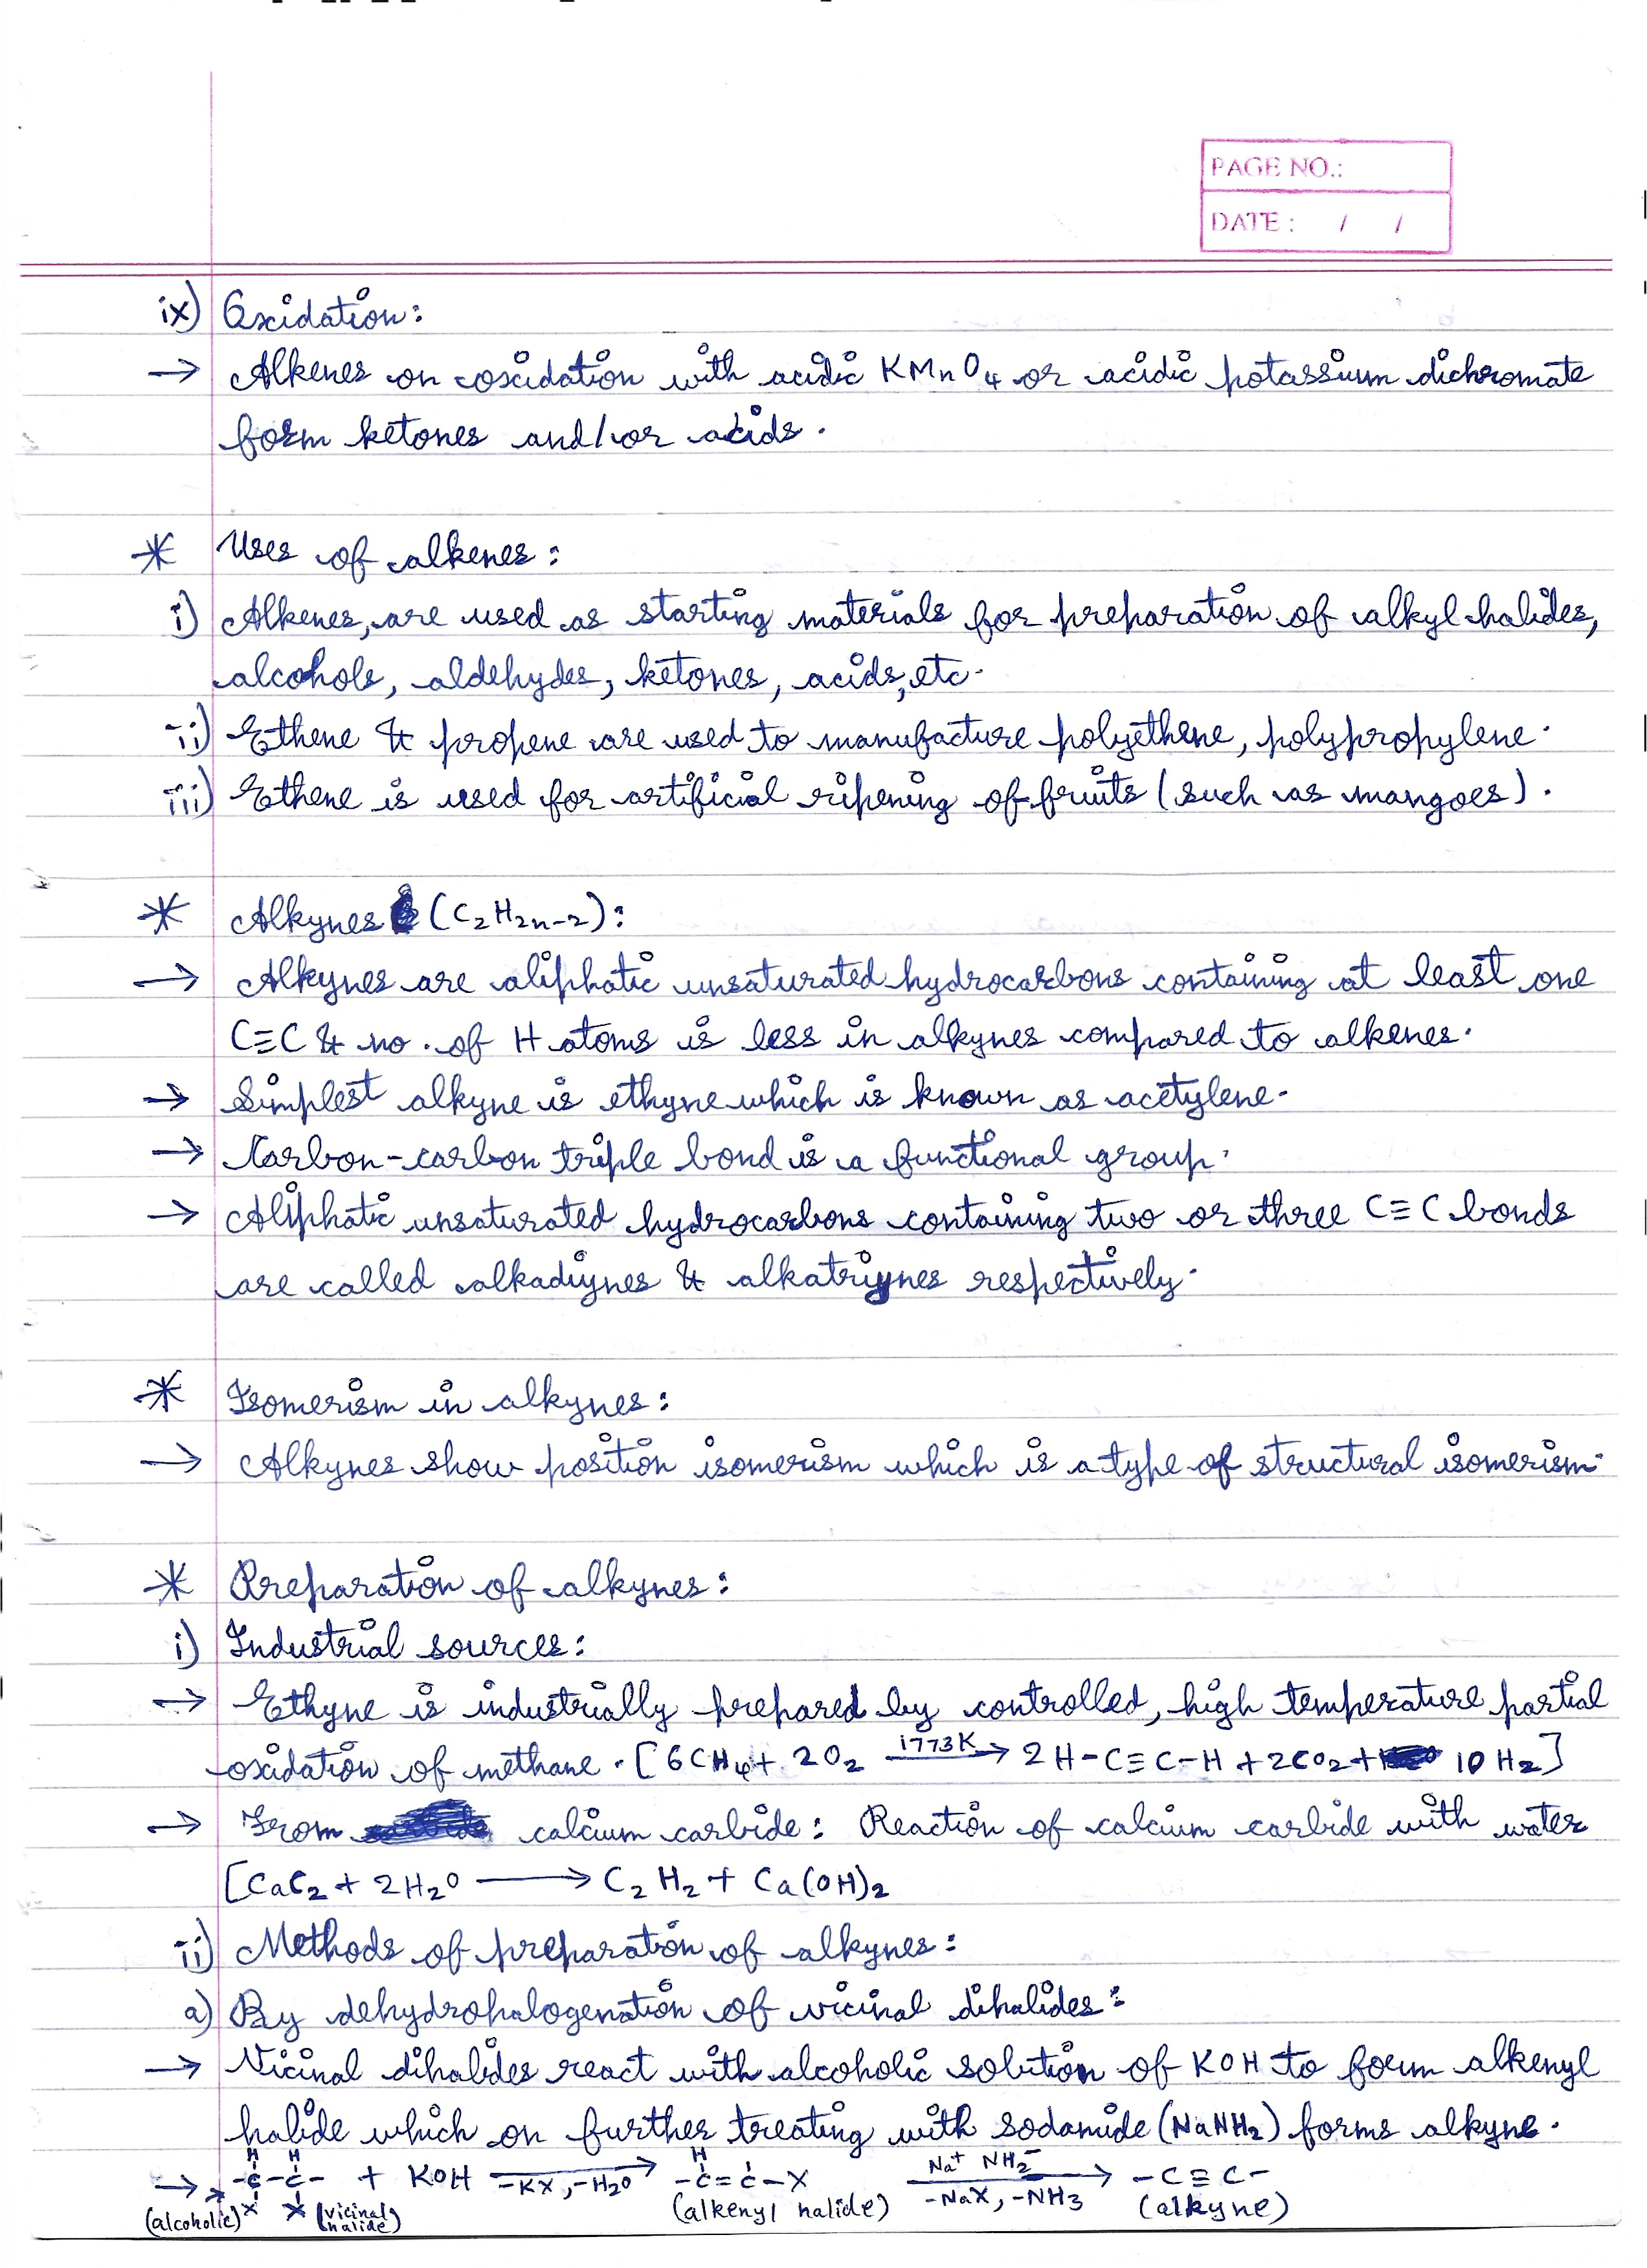 PAGE NO.:
DATE : / /
ix) Oxidation:
→ Alkenes on oxidation with acidic KMnO4 or acidic potassium dichromate
form ketones and/or acids.
* Uses of alkenes:
i) Alkenes, are used as starting materials for preparation of alkyl halides,
alcohols, aldehydes, ketones, acids, etc.
ii) Ethene & propene are used to manufacture polyethene, polypropylene.
iii) Ethene is used for artificial ripening of fruits (such as mangoes).
* Alkynes (C2H2n-2):
→ Alkynes are aliphatic unsaturated hydrocarbons containing at least one
C≡C & no. of H atoms is less in alkynes compared to alkenes.
→ Simplest alkyne is ethyne which is known as acetylene.
→ Carbon-carbon triple bond is a functional group.
→ Aliphatic unsaturated hydrocarbons containing two or three C≡C bonds
are called alkadiynes & alkatriynes respectively.
* Isomerism in alkynes:
→ Alkynes show position isomerism which is a type of structural isomerism.
* Preparation of alkynes:
i) Industrial sources:
→ Ethyne is industrially prepared by controlled, high temperature partial
oxidation of methane. [6CH4 + 2O2 —1773K→ 2H-C≡C-H + 2CO2 + 10H2]
→ From calcium carbide: Reaction of calcium carbide with water
[CaC2 + 2H2O ⟶ C2H2 + Ca(OH)2
ii) Methods of preparation of alkynes:
a) By dehydrohalogenation of vicinal dihalides:
→ Vicinal dihalides react with alcoholic solution of KOH to form alkenyl
halide which on further treating with sodamide (NaNH2) forms alkyne.
H H H Na+ NH2-
→ -C-C- + KOH ⟶ -C=C-X ⟶ -C≡C-
X X -KX, -H2O -NaX, -NH3
(alcoholic) (vicinal halide) (alkenyl halide) (alkyne)